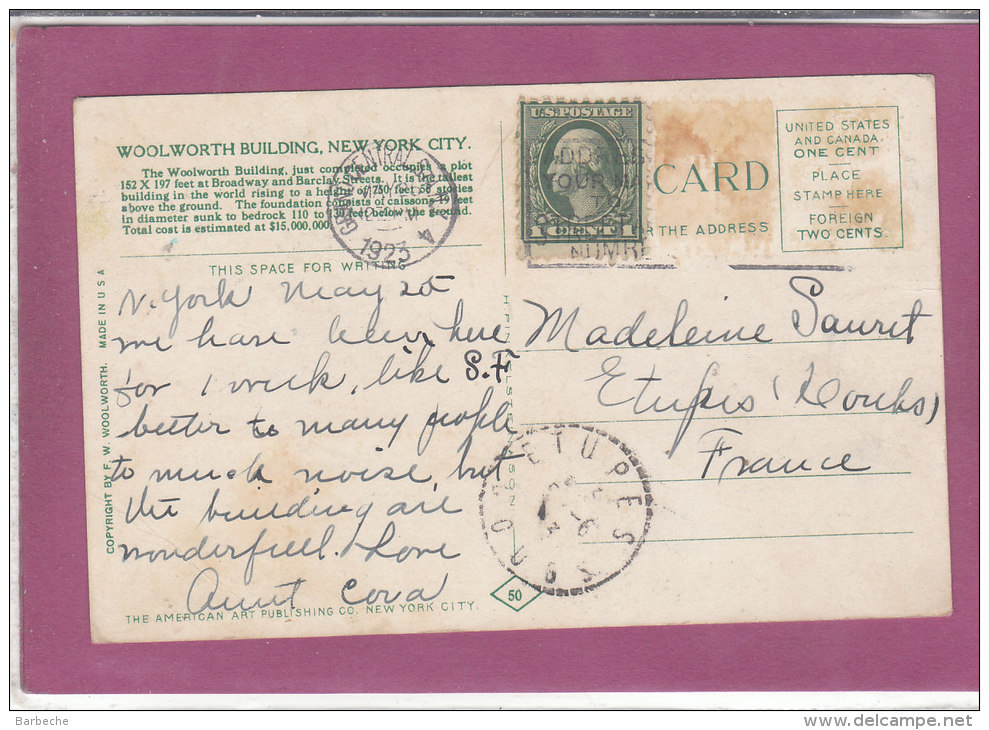 WOOLWORTH BUILDING, NEW YORK CITY.
The Woolworth Building, just completed occupies a plot
152 X 197 feet at Broadway and Barclay Streets. It is the tallest
building in the world rising to a height of 750 feet 58 stories
above the ground. The foundation consists of caissons 19 feet
in diameter sunk to bedrock 110 to 130 feet below the ground.
Total cost is estimated at $15,000,000.
GRAND CENTRAL STA.
1923
4
THIS SPACE FOR WRITING
N. York May 25
we have been here
for 1 week, like S.F
better to many people
to much noise, but
the building are
wonderfull. Love
Aunt Cora
THE AMERICAN ART PUBLISHING CO. NEW YORK CITY.
COPYRIGHT BY F. W. WOOLWORTH. MADE IN U S A
50
U.S. POSTAGE
1 CENT 1
ADDRESS
YOUR MAIL
TO
STREET
NUMBER
CARD
FOR THE ADDRESS
UNITED STATES
AND CANADA
ONE CENT
PLACE
STAMP HERE
FOREIGN
TWO CENTS.
Madeleine Sauret
Etupes (Doubs)
France
ETUPES
DOUBS
Barbeche
www.delcampe.net